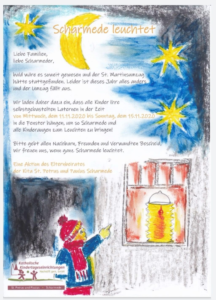 Scharmede leuchtet
Liebe Familien,
liebe Scharmeder,
bald wäre es soweit gewesen und der St. Martinsumzug
hätte stattgefunden. Leider ist dieses Jahr alles anders
und der Umzug fällt aus.
Wir laden daher dazu ein, dass alle Kinder ihre
selbstgebastelten Laternen in der Zeit
von Mittwoch, dem 11.11.2020 bis
in die Fenster hängen, um so Scharmede und
alle Kinderaugen zum Leuchten zu bringen!
Bitte gebt allen Nachbarn, Freunden und Verwandten Bescheid,
wir freuen uns, wenn ganz Scharmede leuchtet.
Eine Aktion des Elternbeirates
der Kita St. Petrus und Paulus Scharmede
Katholische
Kindertageseinrichtungen